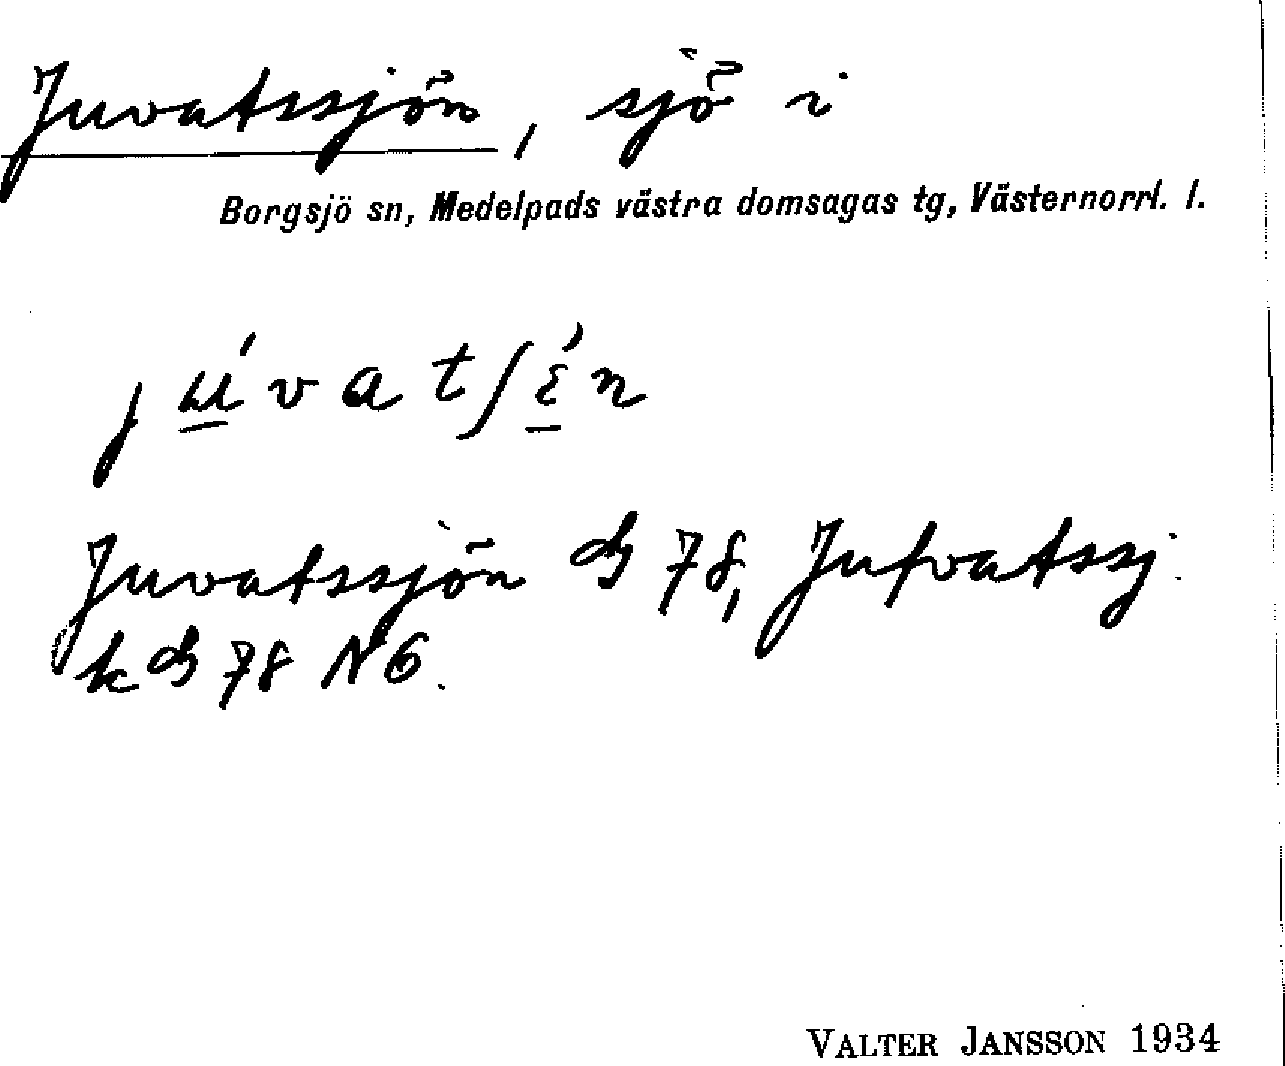 Juvatssjön, sjö i
Borgsjö sn, Medelpads västra domsagas tg, Västernorrl. l.
Juvatssjön 78, Jufvatssj.
k 78 N 6.
VALTER JANSSON 1934